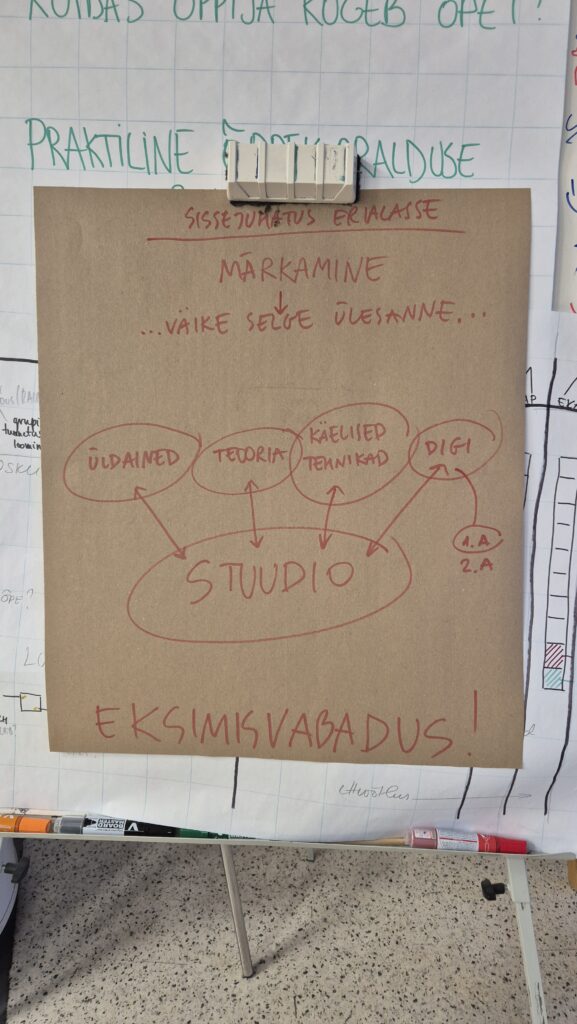 KUIDAS ÕPPIJA KOGEB ÕPET?
PRAKTILINE
SISSEJUHATUS ERIALASSE
MÄRKAMINE
...VÄIKE SELGE ÜLESANNE...
ÜLDAINED
TEOORIA
KÄELISED
TEHNIKAD
DIGI
1.A
2.A
STUUDIO
EKSIMISVABADUS!